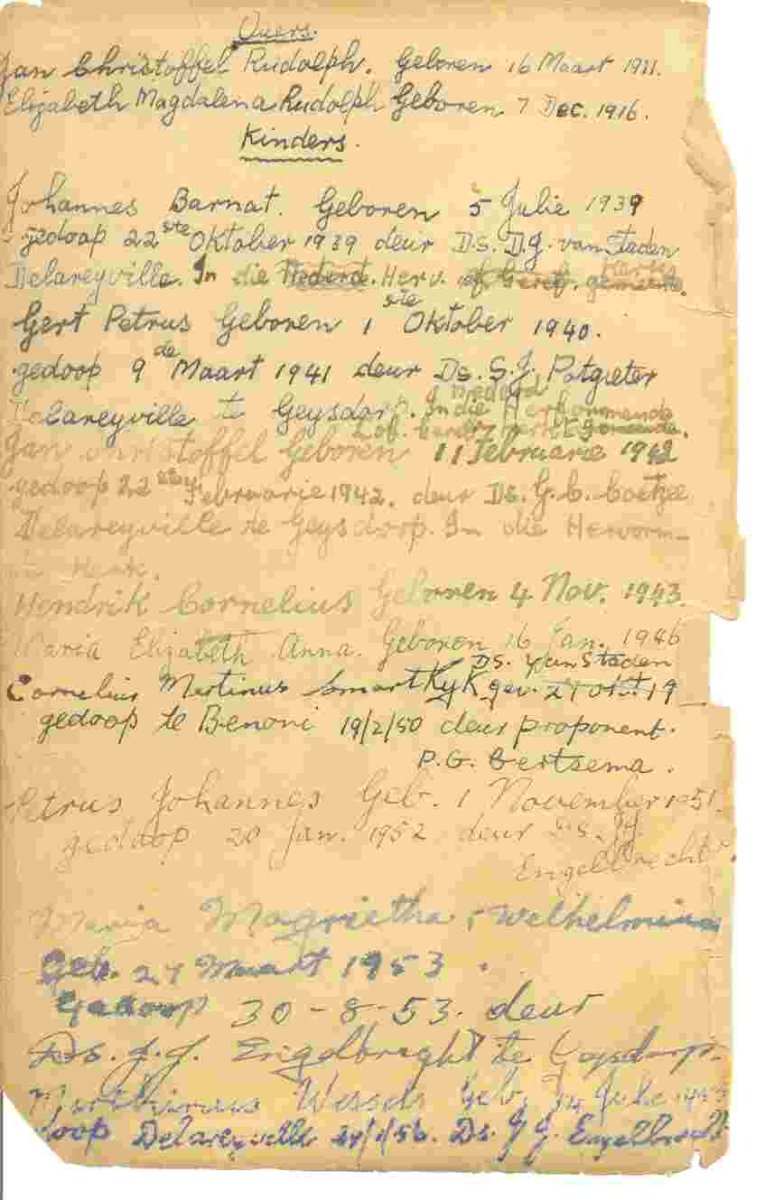 Ouers.
Jan Christoffel Rudolph. Geboren 16 Maart 1911.
Elizabeth Magdalena Rudolph Geboren 7 Dec. 1916.
Kinders.
Johannes Barnat. Geboren 5 Julie 1939
gedoop 22ste Oktober 1939 deur Ds. D.J. van Staden
Delareyville. In die Herv. gemeente.
Gert Petrus Geboren 1ste Oktober 1940.
gedoop 9de Maart 1941 deur Ds. S.J. Potgieter
Nederd
Delareyville te Geysdorp. In die Herkormende
Jan Christoffel Geboren 11 Februarie 1942
gedoop 22 Februarie 1942. deur Ds. G.C. Coetzee
Delareyville te Geysdorp. In die Hervorm-
Kerk.
Hendrik Cornelius Geboren 4 Nov. 1943.
Maria Elizabeth Anna. Geboren 16 Jan. 1946
Ds. van Staden
Cornelius Martinus Smartryk gev. 21 Okt. 19
gedoop te Benoni 19/2/50 deur proponent.
P.G. Bertsema.
Petrus Johannes Geb. 1 November 1951.
gedoop 20 Jan. 1952 deur Ds. J.J.
Engelbrecht.
Maria Magrietha Welhelmina
Geb. 27 Maart 1953.
Gedoop 30-8-53. deur
Ds. J.J. Engelbreght te Geysdorp.
Marthinus Wessels Geb. 14 Julie
doop Delareyville Ds. J.J. Engelbrecht